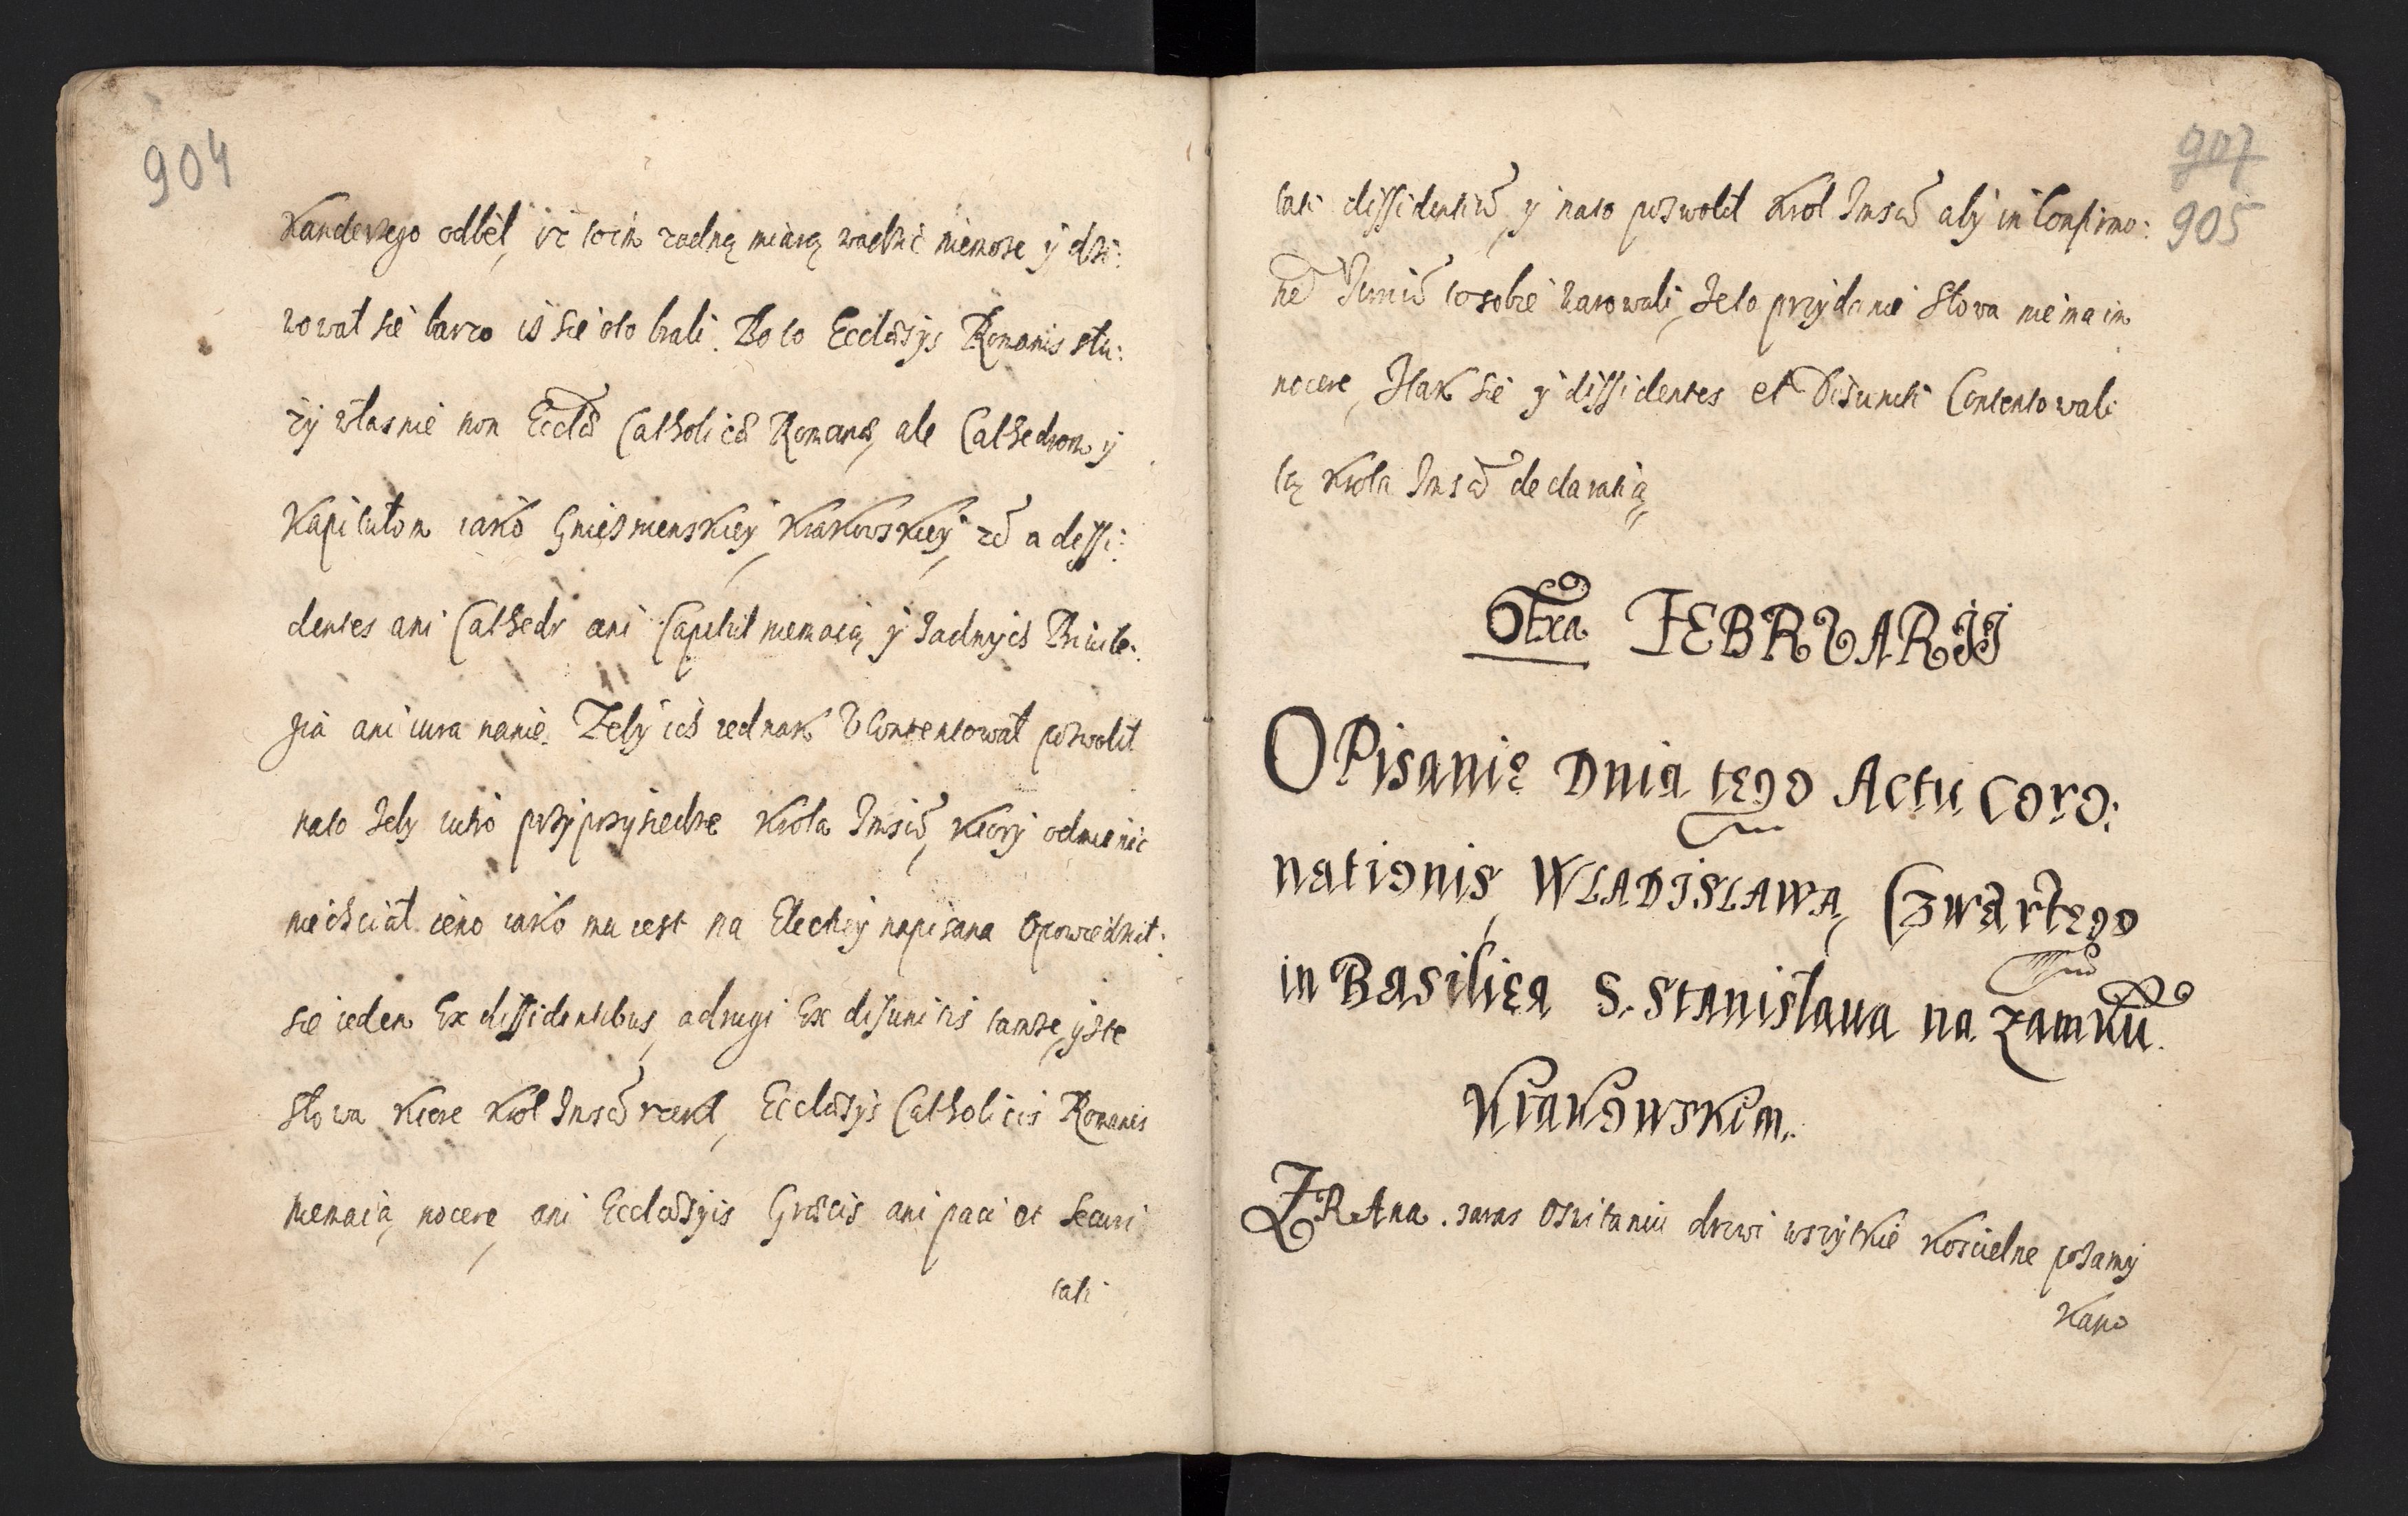 904
Kanclerzego odbeł, iż to im żadną miarą wadzić niemoże ÿ dzi:
wował sie barzo iż sie oto brali. Bo to Ecclæsÿs Romanis słu:
żÿ własnie non Ecclæ Catholicæ Romanæ, ale Cathedrom ÿ
Kapitułom iako Gnieznienskieÿ, Krakowskieÿ, a dissi:
dentes ani Cathedr ani Capituł niemaią ÿ żadnÿch Priuile:
gia ani iura nanie. Żebÿ ich iednak Vcontentował pozwolił
nato żebÿ iutro przÿ przÿsiedze Krola Jmsci, Ktorÿ odmienić
niechciał ieno iako mu iest na Electieÿ napisana Opowiedził:
sie ieden Ex dissidentibus, a drugi Ex disunitis tamże, ÿżte
słowa Ktore Krol Jmsć rzekł, Ecclæsÿs Catholicis Romanis
niemaią nocere, ani Ecclæsÿis Græcis ani paci et Securi
tati
907
905
tati dissidentiũ, ÿ nato pozwolił Krol Jmsć abÿ in Confirmo:
ne Jurniũ to sobie warowali, że to przÿdanie słowa niema im
nocere, Jtak sie ÿ dissidentes et Disuniti Contentowali
tą Krola Jmsci declaratią
6txa FEBRVARIJ
OPisanie Dnia tego Actu Coro:
nationis, WLADISLAWA, Czwartego
in Basilica S. Stanisłaua na Zamku
Krakowskim.
ZRAna. zaras Oswitaniu drzwi wszÿtkie Koscielne pozamÿ
Kano